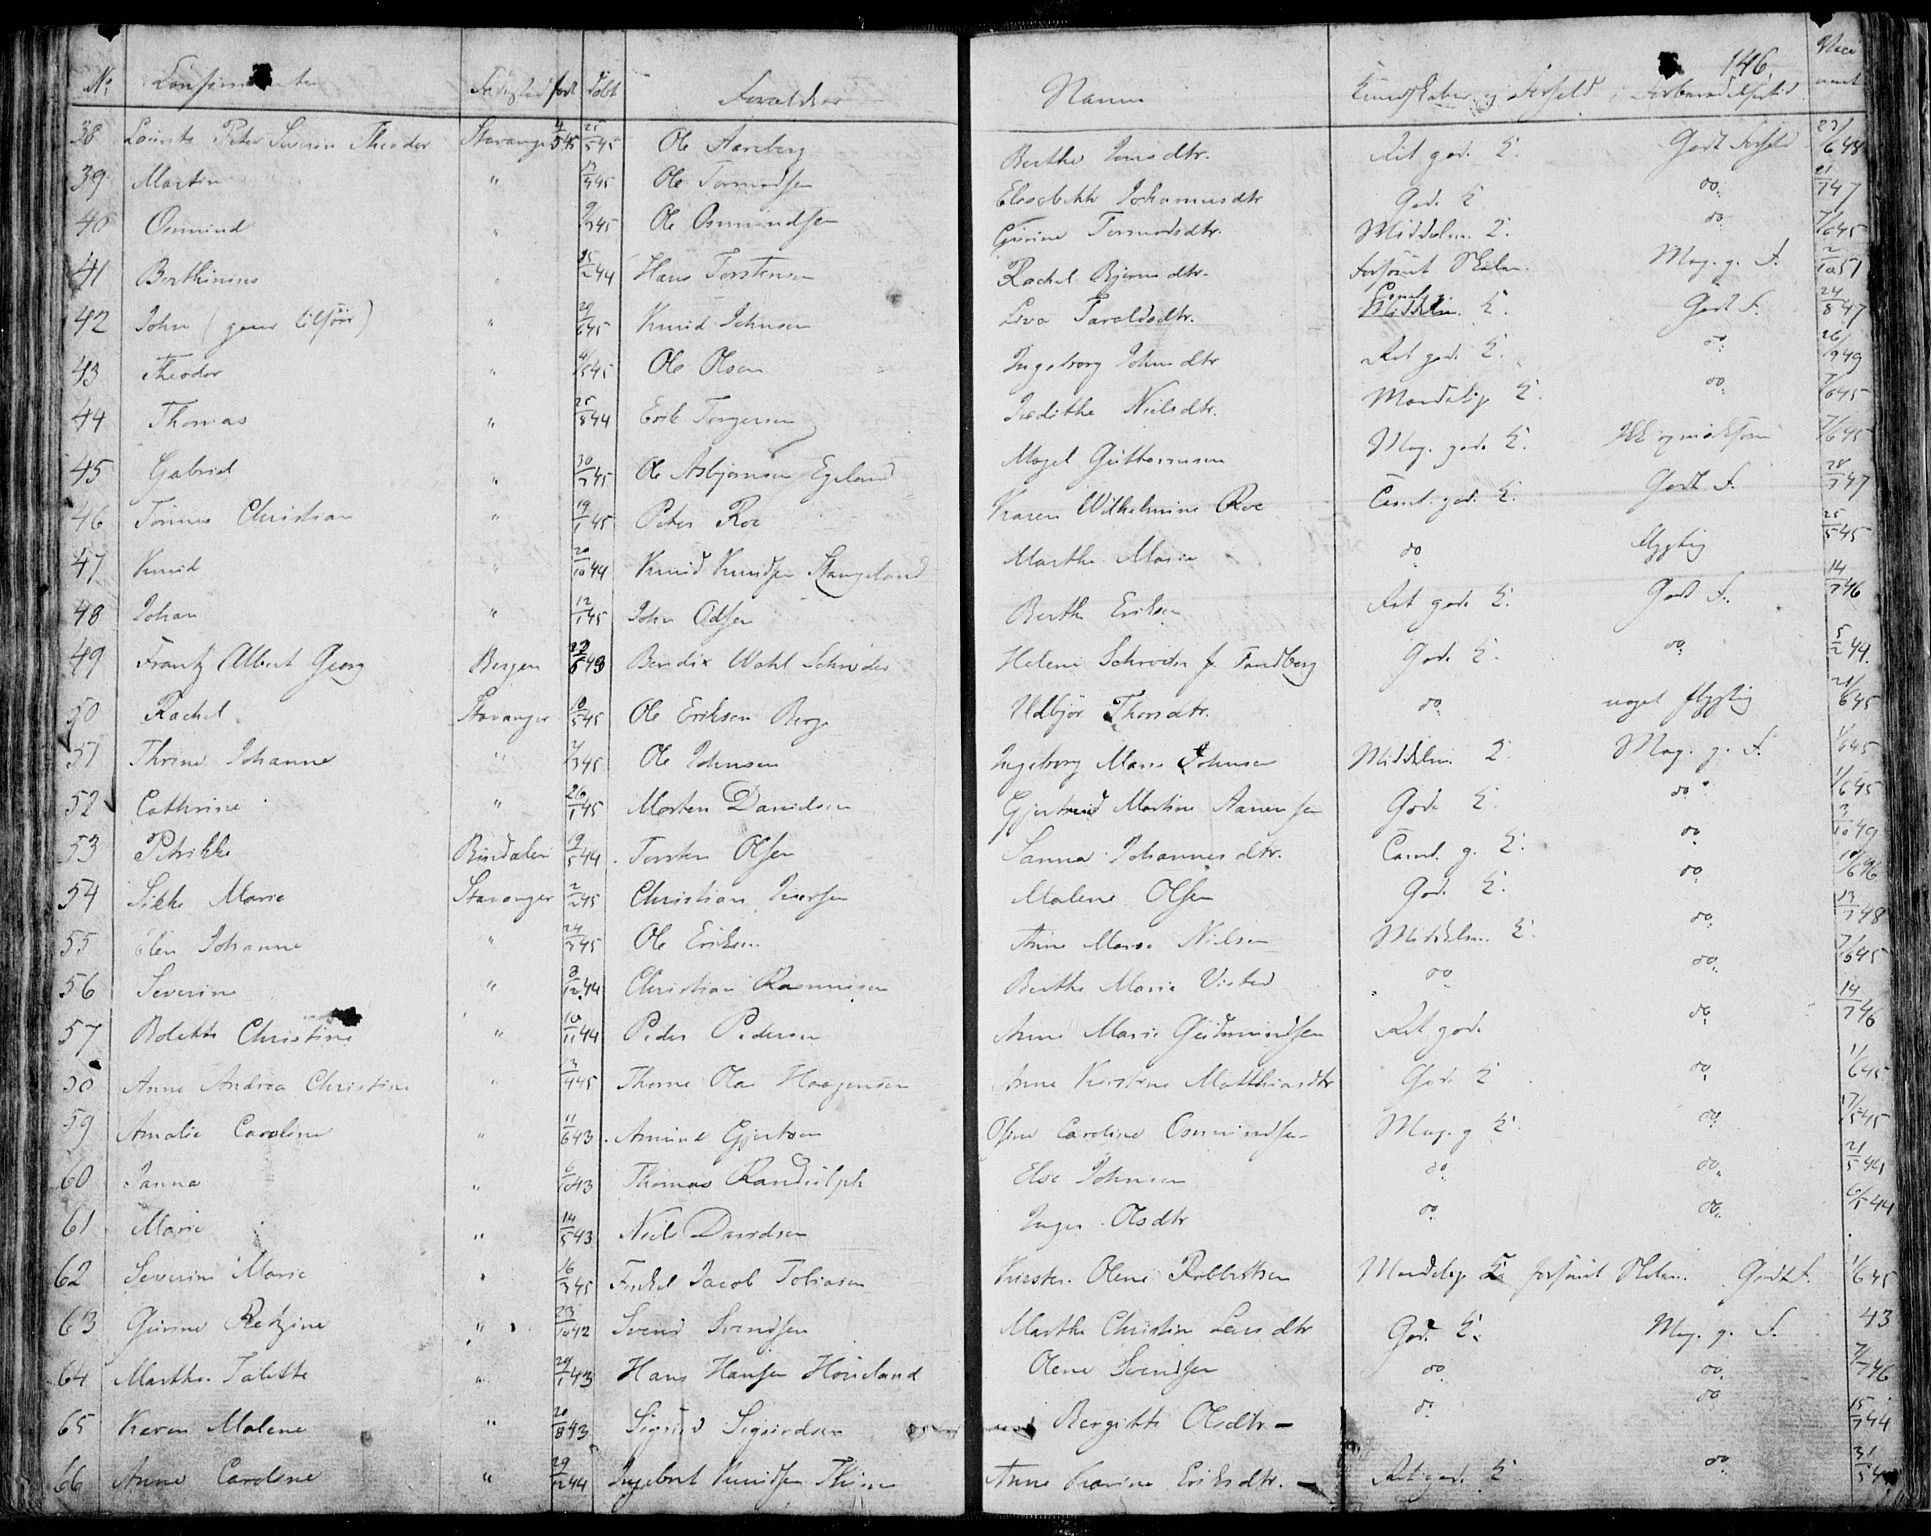 146.
No Confirmanten Födested född döbt Forældre Navne Kundskaber og Forhold i Forberedelsestid Vacc
38 Lauritz Peter Severin Theodor Stavanger 4/5 45 25/5 45 Ole Aareberg Berthe Jonsdtr. Ret god K. Godt Forhold 23/6 48
39 Martin " 45 Ole Tormodsen Elisabeth Johannesdtr God K. do. 21/7 47
40 Osmund " 9/3 45 Ole Osmundsen Gurine Tormodsdtr. Middelm. K. do 7/6 45
41 Berthinius " 25/2 44 Hans Torstensen Rachel Bjornsdtr. forsömt Skolen. Meg. g. F. 2/10 51
42 John " 20/6 45 Knud Johnsen Liva Taraldsdtr. Middelm. K. Godt F. 24/8 47
43 Theodor " 4/5 45 Ole Olsen Ingeborg Johnsdtr Ret god K. do. 26/9 49
44 Thomas " 25/8 44 Erik Torgersen Judithe Nielsdtr. Maadelig K. do. 7/6 45
45 Gabriel " 30/3 45 Ole Asbjörnsen Egeland Magel Guttormsen Meg. god K. 7/6 45
46 Tönnes Christian " 19/1 45 Peter Roe Karen Wilhelmine Roe Taml. god K. Godt F. 28/7 47
47 Knud " 20/10 44 Knud Knudsen Stangeland Marthe Marie do flygtig 25/5 45
48 Johan " 12/1 45 John Odsen Berthe Eriksen Ret god K. Godt F. 14/7 46
49 Frantz Albert Georg Bergen 43 Bendix Wahl Schröder Helene Schröder f. Sandberg God K. do. 5/2 44.
50 Rachel Stavanger 18/5 45 Ole Eriksen Berge Udbjör Thorsdtr. do. noget flygtig 21/6 45
51 Thrine Johanne " 7/3 45 Ole Johnsen Ingeborg Marie Johnsen Middelm. K. Meg. g. F. 1/6 45
52 Cathrine " 26/1 45 Morten Danielsen Gjertrud Martine Aanensen God K. do. 1/6 45
53 Petrikke 19/5 44 Torsten Olsen Sanna Johannesdtr. Taml. g. K. do. 3/10 49
54 Sikke Marie Stavanger 2/2 45 Christian Iversen Malene Olsen God K. do. 46
55 Elen Johanne " 24/3 45 Ole Eriksen Anne Marie Nielsen Middelm. K. do. 13/7 48
56 Severine " 8/12 44 Christian Rasmussen Berthe Marie Visted do do. 7/6 45
57 Bolette Christine " 10/11 44 Peder Pedersen Anne Marie Gudmundsen Ret god do. 14/7 46
58 Anne Andrea Christine " 45 Thorne Olai Haagensen Anne Kirstine Matthiasdtr God K do. 1/6 45
59 Amalie Caroline " 11/6 43 Amund Gjertsen Osine Caroline Osmundsen Meg. g K. do. 17/5 45
60 Janna " 6/10 43 Thomas Randulph Else Johnsen do do. 21/5 44
61 Marie " 14/5 43 Niels Davidsen Inger Olsdtr do do. 6/5 44
62 Severine Marie " 16/3 45 Jacob Tobiasen Olene Maadelig K forsömt Skolen. Godt F. 1/6 45
63 Gurine Retzine " 23/10 42 Svend Svendsen Marthe Christine Larsdtr God K. Meg. g. F. 43
64 Marthe Talette " 29/1 43 Hans Hansen Houeland Olene Svendsen do do. 7/7 46
65 Karen Malene " 20/8 43 Sigurd Sigurdsen Bergitte Olsdtr - do. do 15/7 44
66 Anne Caroline " 29/2 44 Ingebret Knudsen Anne Karine Eriksdtr. - Ret god K do. 31/5